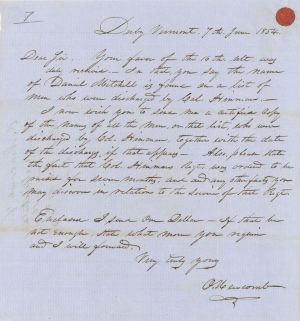 7
Derby Vermont, 7th June 1854.
Dear Sir. Your favor of the 10th ult. was
duly received — In that you say the name
of Daniel Mitchell is found in a list of
men who were discharged by Col.
I now wish you to send me a certified copy
of the names of all the men, on that list, who were
discharged by Col. together with the date
of the discharge, if that appears — Also, please state
the fact that Col. Regt. was raised to be
raised for seven months, and any other facts you
may discover in relation to the service of that Regt.
Enclosed I send One Dollar — If that be
not enough, state what more you require
and I will forward.
Very truly yours